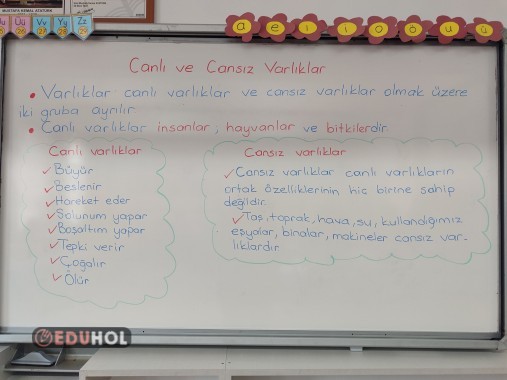 MUSTAFA KEMAL ATATÜRK
Uu Üü Vv Yy Zz
25 26 27 28 29
a e ı i o ö u ü
Canlı ve Cansız Varlıklar
• Varlıklar canlı varlıklar ve cansız varlıklar olmak üzere
iki gruba ayrılır.
• Canlı varlıklar insanlar, hayvanlar ve bitkilerdir.
Canlı varlıklar
✓ Büyür
✓ Beslenir
✓ Hareket eder
✓ Solunum yapar
✓ Boşaltım yapar
✓ Tepki verir
✓ Çoğalır
✓ Ölür
Cansız varlıklar
✓ Cansız varlıklar canlı varlıkların
ortak özelliklerinin hiç birine sahip
değildir.
✓ Taş, toprak, hava, su, kullandığımız
eşyalar, binalar, makineler cansız var-
lıklardır.
EDUHOL